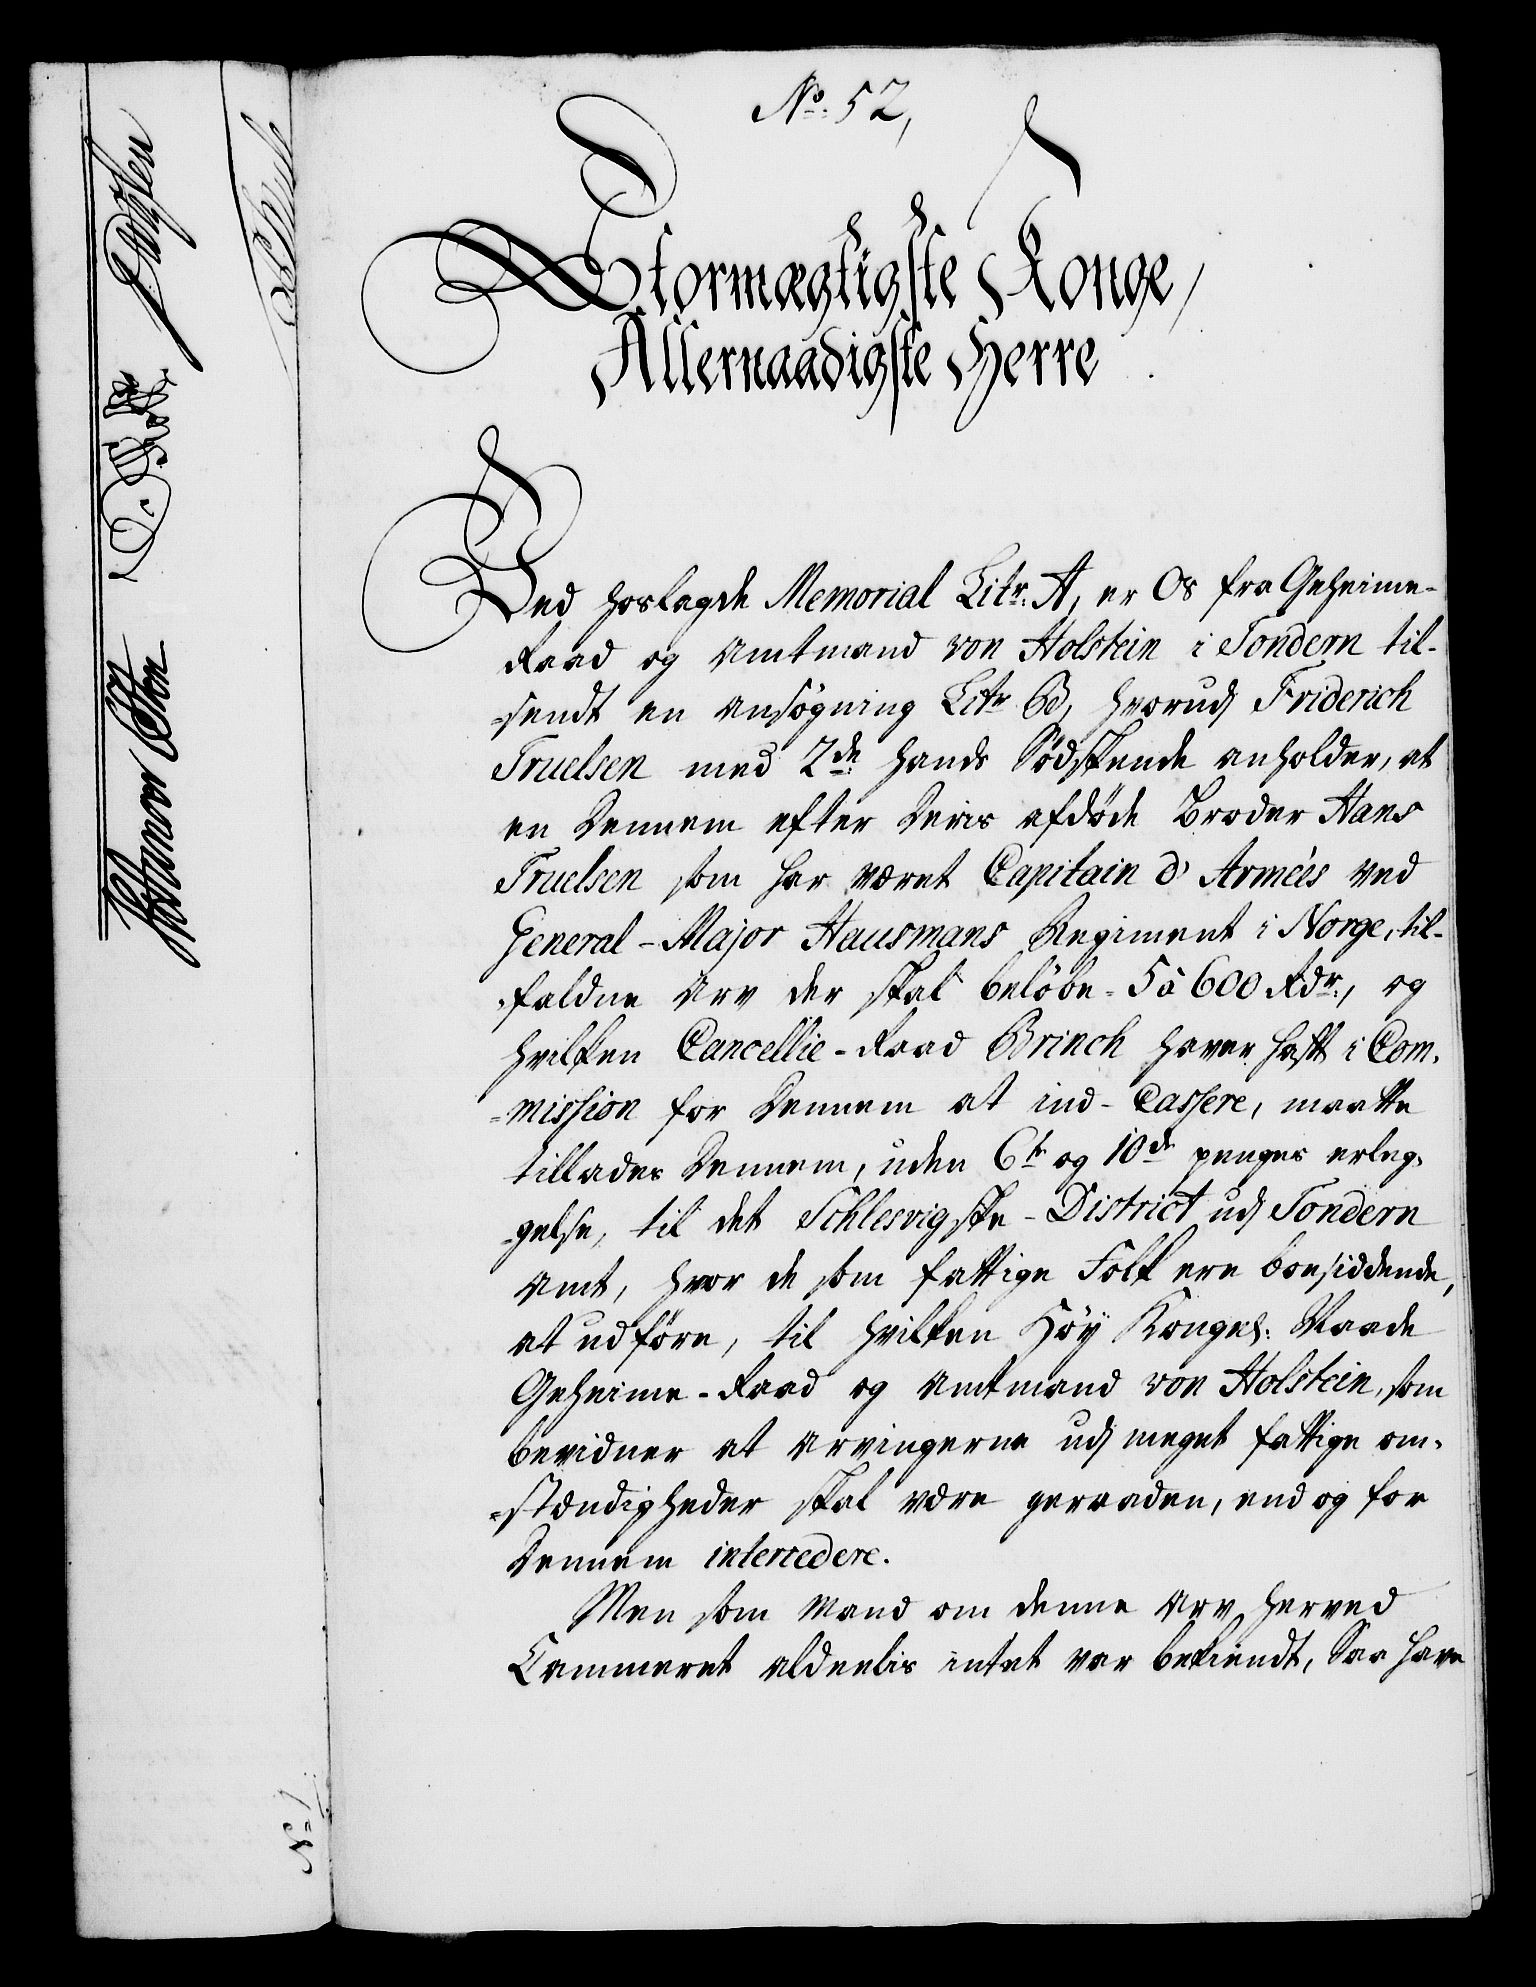 No. 52,
Stormægtigste Konge,
Allernaadigste Herre
Ved hoslagde Memorial Litr. A, er Os fra Geheime-
Raad og Amtmand von Holstein i Tondern til-
-sendt en Ansögning Litr. B, hvorudj Friderich
Truelsen med 2de hands Södskende anholder, at
en Dennem efter Deris afdöde Broder Hans
Truelsen som har været Capitain d'Armées ved
General-Major Hausmans Regiment i Norge, til-
-faldne Arv der skal belöbe 5 à 600 Rdr., og
hvilken Cancellie-Raad Brinch haver haft i Com-
-mission for Dennem at ind-Cassere, maatte
tillades Dennem, uden 6te og 10de penges erleg-
-gelse, til det Schlesvigske-District udj Tondern
Amt, hvor de som fattige Folk ere boesiddende,
at udföre, til hvilken Höy Kongel: Naade
Geheime-Raad og Amtmand von Holstein, som
bevidner at Arvingerne udj meget fattige om-
-stændigheder skal være geraaden, end og for
Dennem intercedere.
Men som Mand om denne Arv herved
Cammeret aldeelis intet var bekiendt, Saa have
No. 1